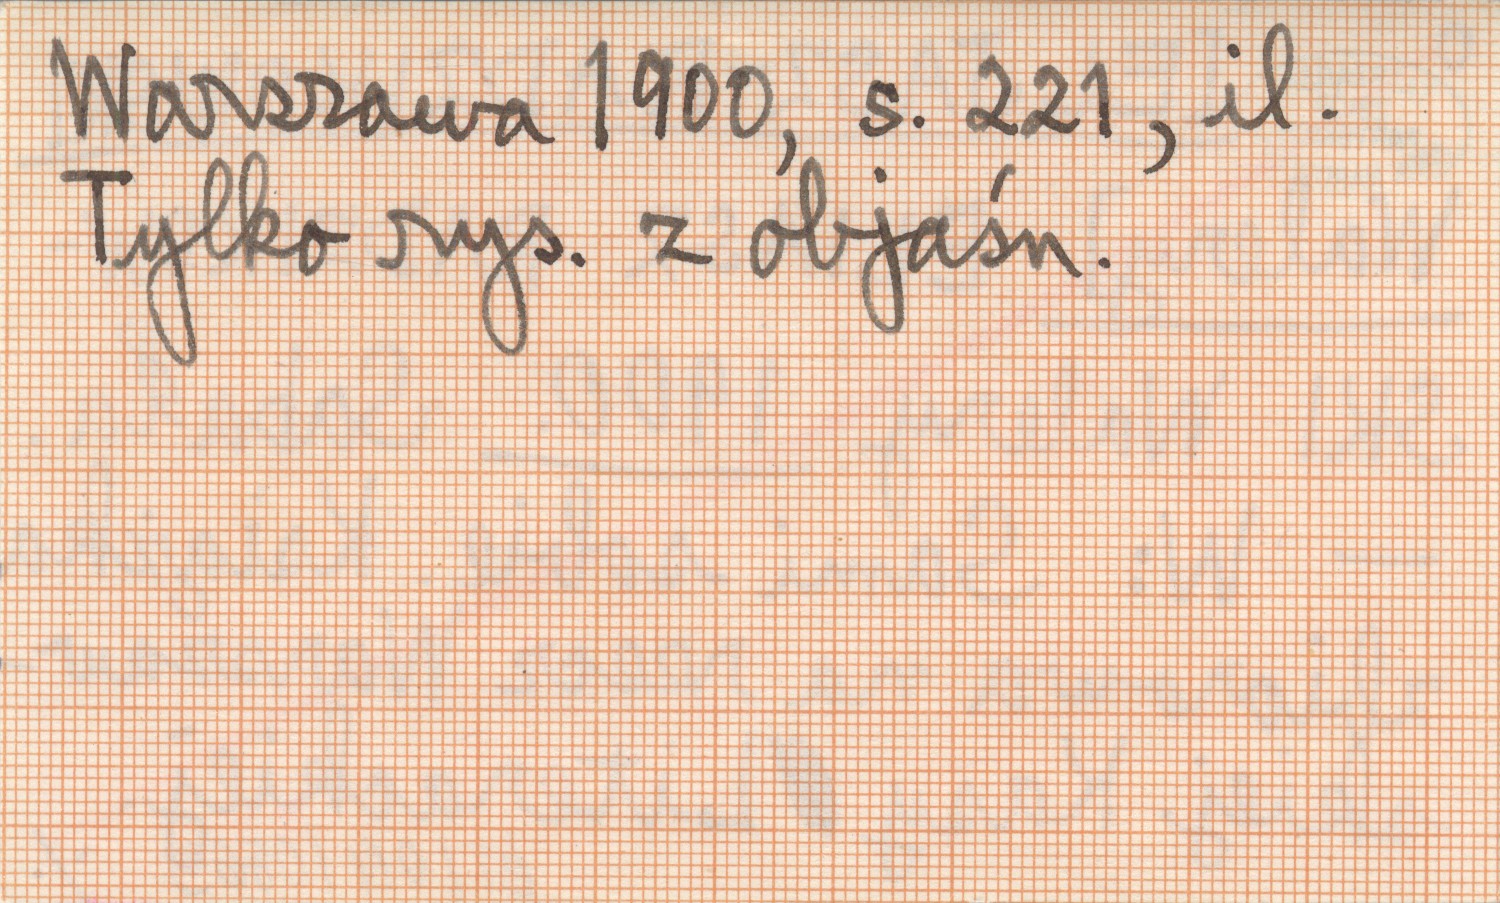 Warszawa 1900, s. 221, il.
Tylko rys. z objaśn.